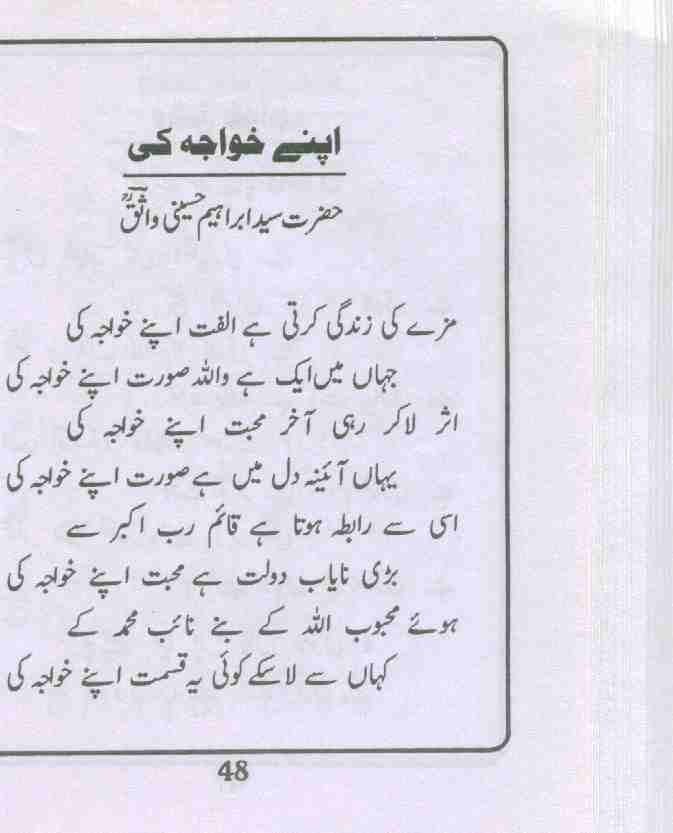 اپنے خواجہ کی
حضرت سید ابراہیم حسینی واثقؔ ؒ
مزے کی زندگی کرتی ہے الفت اپنے خواجہ کی
جہاں میں ایک ہے واللہ صورت اپنے خواجہ کی
اثر لاکر رہی آخر محبت اپنے خواجہ کی
یہاں آئینہ دل میں ہے صورت اپنے خواجہ کی
اسی سے رابطہ ہوتا ہے قائم رب اکبر سے
بڑی نایاب دولت ہے محبت اپنے خواجہ کی
ہوئے محبوب اللہ کے بنے نائب محمدؐ کے
کہاں سے لاسکے کوئی یہ قسمت اپنے خواجہ کی
48